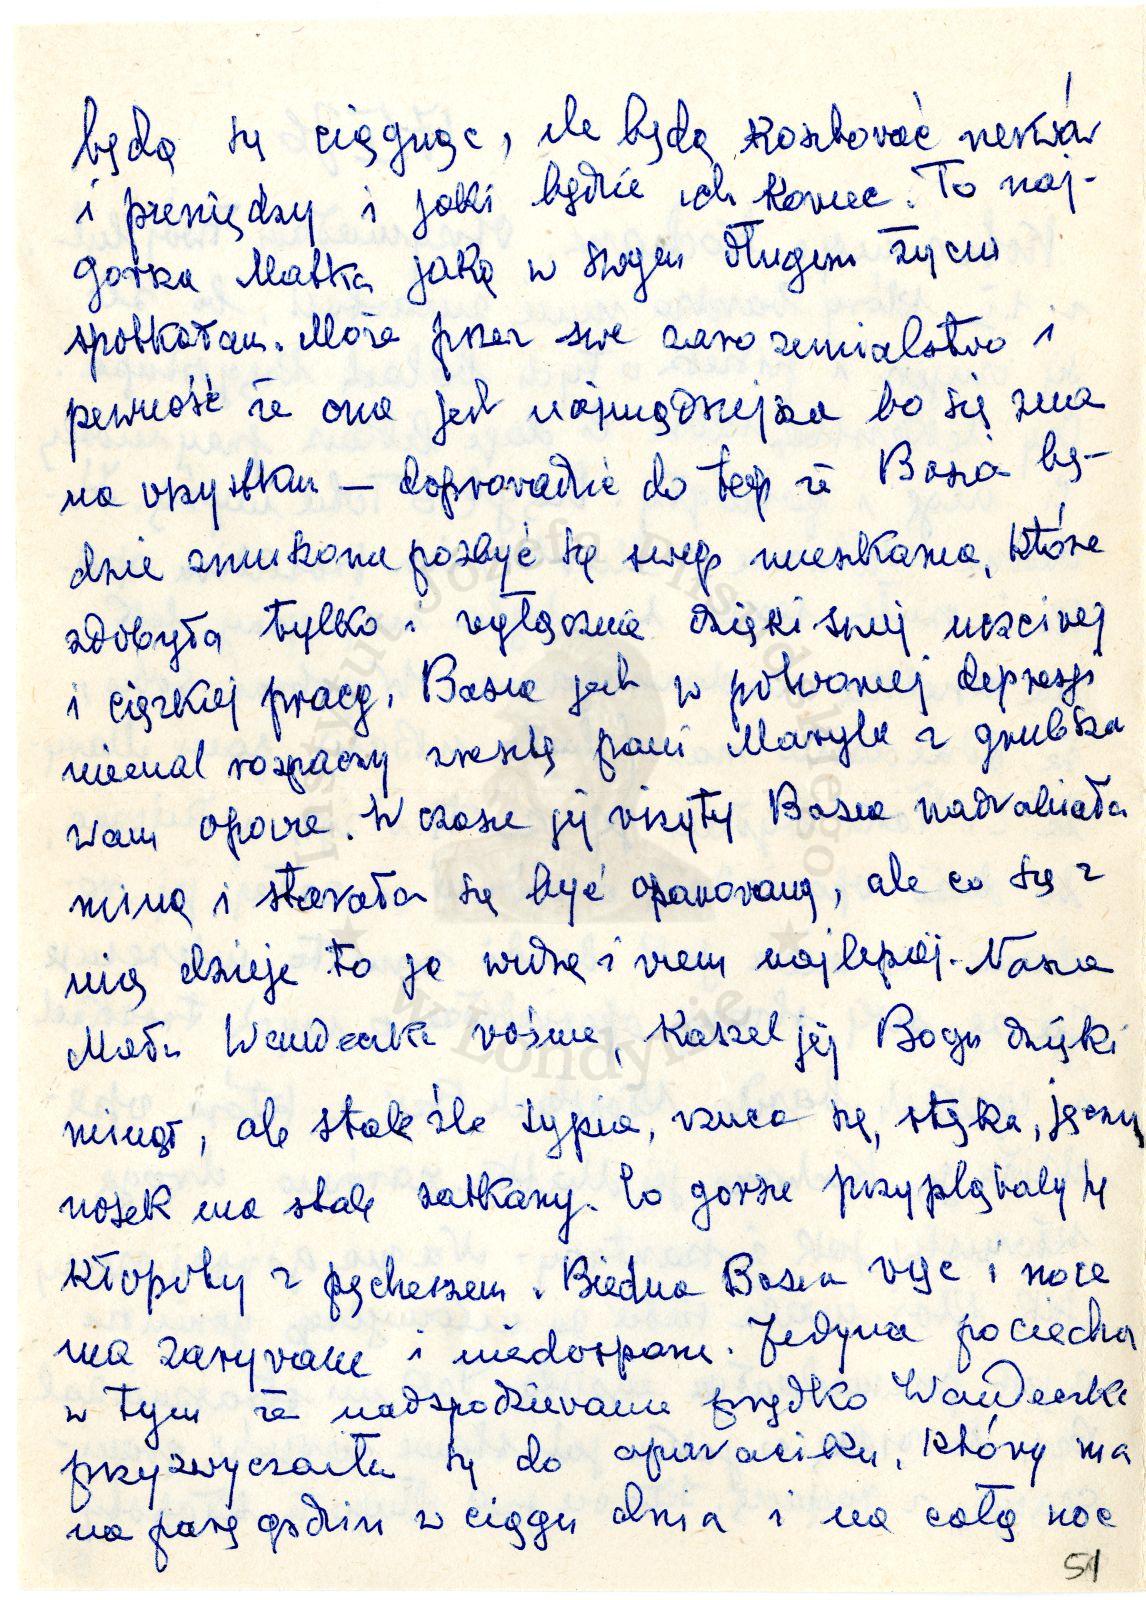 będą się ciągnąc, ile będą kosztować nerwów
i pieniędzy i jaki będzie ich koniec. To naj-
gorsza Matka jaką w swojem długiem życiu
spotkałam. Może przez swe zarozumialstwo i
pewność że ona jest najmądrzejsza bo się zna
na wszystkim — doprowadzić do tego że Basia bę-
dzie zmuszona pozbyć się swego mieszkania, które
zdobyła tylko i wyłącznie dzięki swej uczciwej
i ciężkiej pracy. Basia jest w potwornej depresji
niemal rozpaczy zresztą pani Maryla z grubsza
Wam opowie. W czasie jej wizyty Basia nadrabiała
miną i starała się być opanowaną, ale co się z
nią dzieje to ja widzę i wiem najlepiej. Nasza
Mała Wandeczka rośnie, kaszel jej Bogu dzięki
minął, ale stale źle sypia, rzuca się, stęka, jęczy
nosek ma stale zatkany. Co gorsze przyplątały się
kłopoty z pęcherzem. Biedna Basia więc i noce
ma zarywane i niedospane. Jedyna pociecha
w tym że nadspodziewanie prędko Wandeczka
przyzwyczaiła się do aparaciku, który ma
na parę godzin w ciągu dnia i na całą noc
51
Instytut Józefa Piłsudskiego
w Londynie